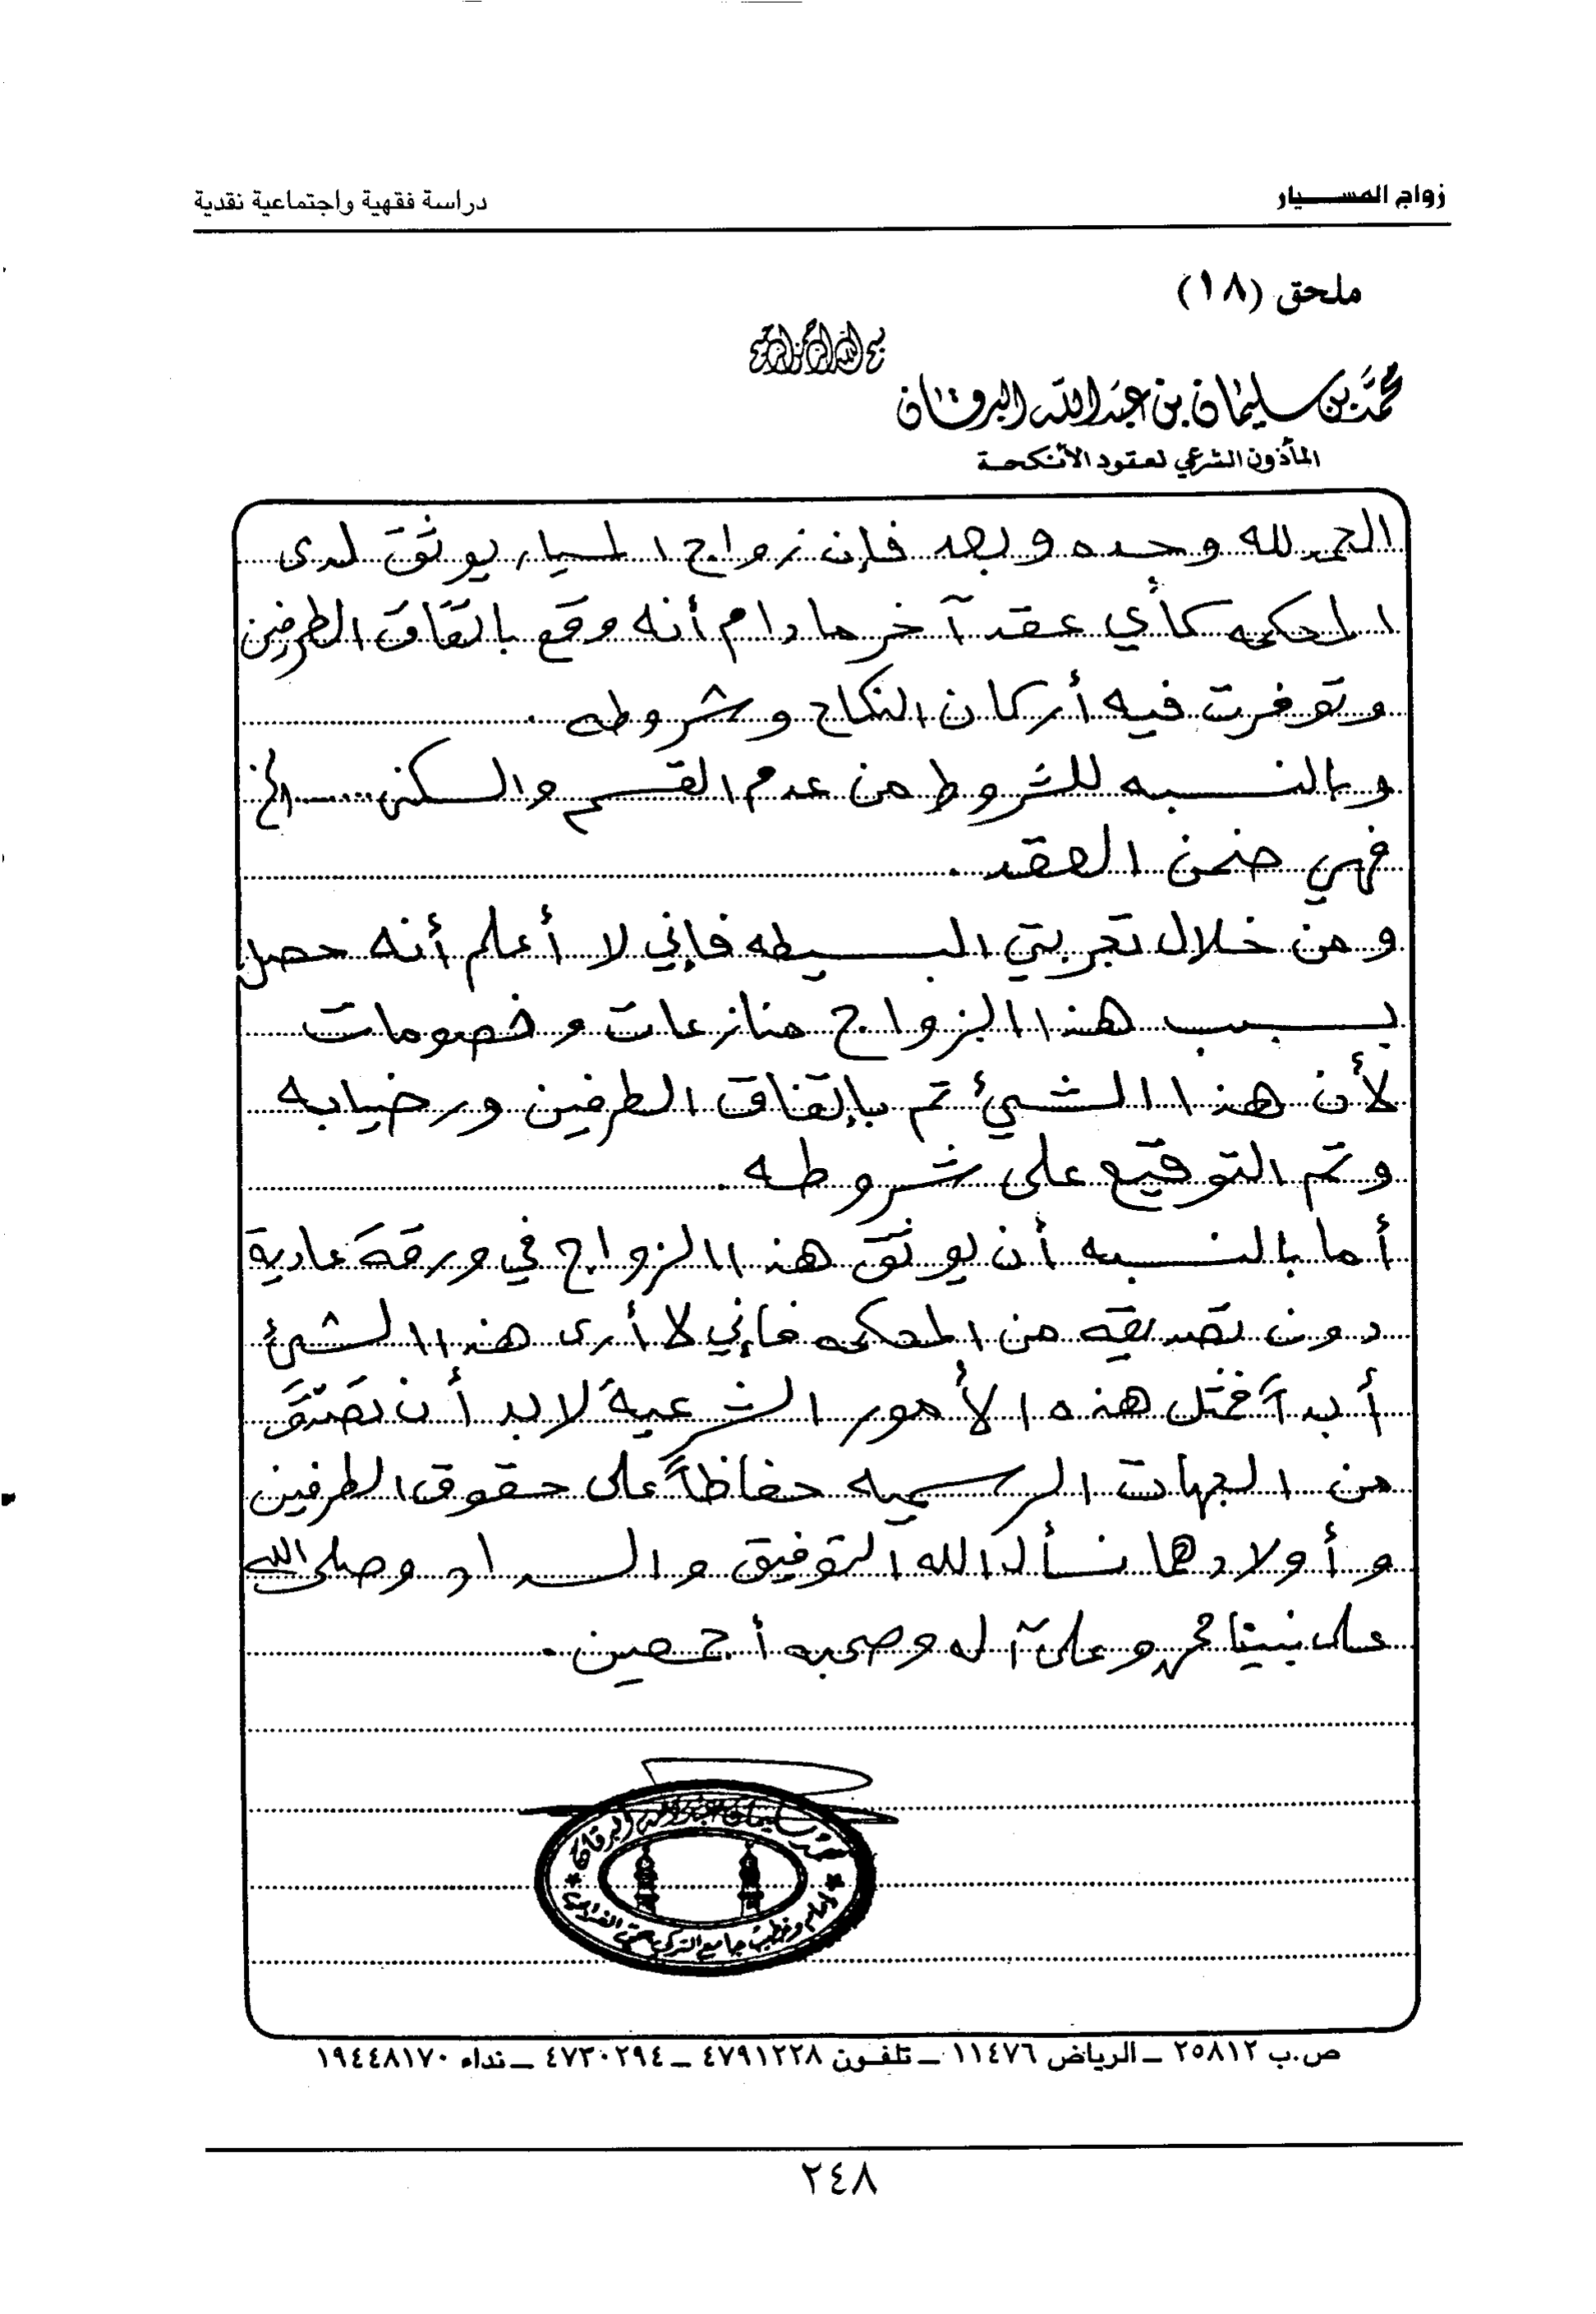 زواج المسيار
دراسة فقهية واجتماعية نقدية
ملحق (١٨)
بسم الله الرحمن الرحيم
محمد بن سليمان بن عبدالله البرقان
المأذون الشرعي لعقود الأنكحة
الحمد لله وحده وبعد فإن زواج المسيار يوثق لدى
المحكمه كأي عقد آخر ما دام أنه وقع باتفاق الطرفين
وتوفرت فيه أركان النكاح وشروطه .
وبالنسبه للشروط من عدم القسم والسكنى ...... الخ
فهي ضمن العقد .
ومن خلال تجربتي البسيطه فإني لا أعلم أنه حصل
بسبب هذا الزواج منازعات وخصومات
لأن هذا الشيئ تم بإتفاق الطرفين ورضيا به
وتم التوقيع على شروطه .
أما بالنسبه أن يوثق هذا الزواج في ورقة عادية
دون تصديقه من المحكمه فإني لا أرى هذا الشيئ
أبداً فمثل هذه الأمور الشرعية لا بد أن تصدَّق
من الجهات الرسميه حفاظاً على حقوق الطرفين
وأولادها نسأل الله التوفيق والسداد وصلى الله
على نبينا محمد وعلى آله وصحبه أجمعين .
محمد سليمان عبدالله البرقان
إمام وخطيب جامع التركي
ص.ب ٢٥٨١٢ – الرياض ١١٤٧٦ – تلفون ٤٧٩١٢٢٨ – ٤٧٣٠٢٩٤ – نداء ١٩٤٤٨١٧٠
٢٤٨